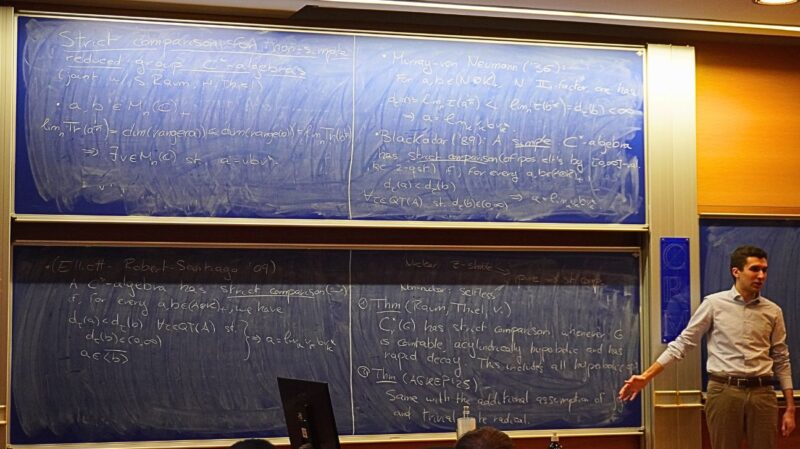 Strict comparison for non-simple
reduced group C*-algebras
(joint w/ S. Raum, H. Thiel)
• a, b ∈ Mn(C)+
lim_n Tr(a^{1/n}) = dim(range(a)) ≤ dim(range(b)) = lim_n Tr(b^{1/n})
⇒ ∃ v ∈ Mn(C) st. a = vbv*.
• Murray-von Neumann ('36):
For a, b ∈ (N⊗K)+, N II₁-factor, one has
⇒ a = lim_k v_k b v_k*.
• Blackadar ('89): A simple C*-algebra
has strict comparison (of pos. elt's by
if, for every a, b ∈ (A⊗K)+
d_τ(a) < d_τ(b)
∀ τ ∈ QT(A) st. d_τ(b) ∈ (0,∞) ⇒ a = lim_k v_k b v_k*
• (Elliott-Robert-Santiago '09)
A C*-algebra has strict comparison
if, for every a, b ∈ (A⊗K)+, we have
d_τ(a) < d_τ(b) ∀ τ ∈ QT(A) st.
d_τ(b) ∈ (0,∞) ⇒ a = lim_k v_k b v_k*
Nuclear: Z-stable
Non-nuclear: selfless
① Thm (Raum, Thiel, V.)
C*(G) has strict comparison whenever G
is countable, acylindrically hyperbolic and has
rapid decay. This includes all hyperbolic
② Thm (AGKEP '25)
Same with the additional assumption of
and trivial radical.
CRM